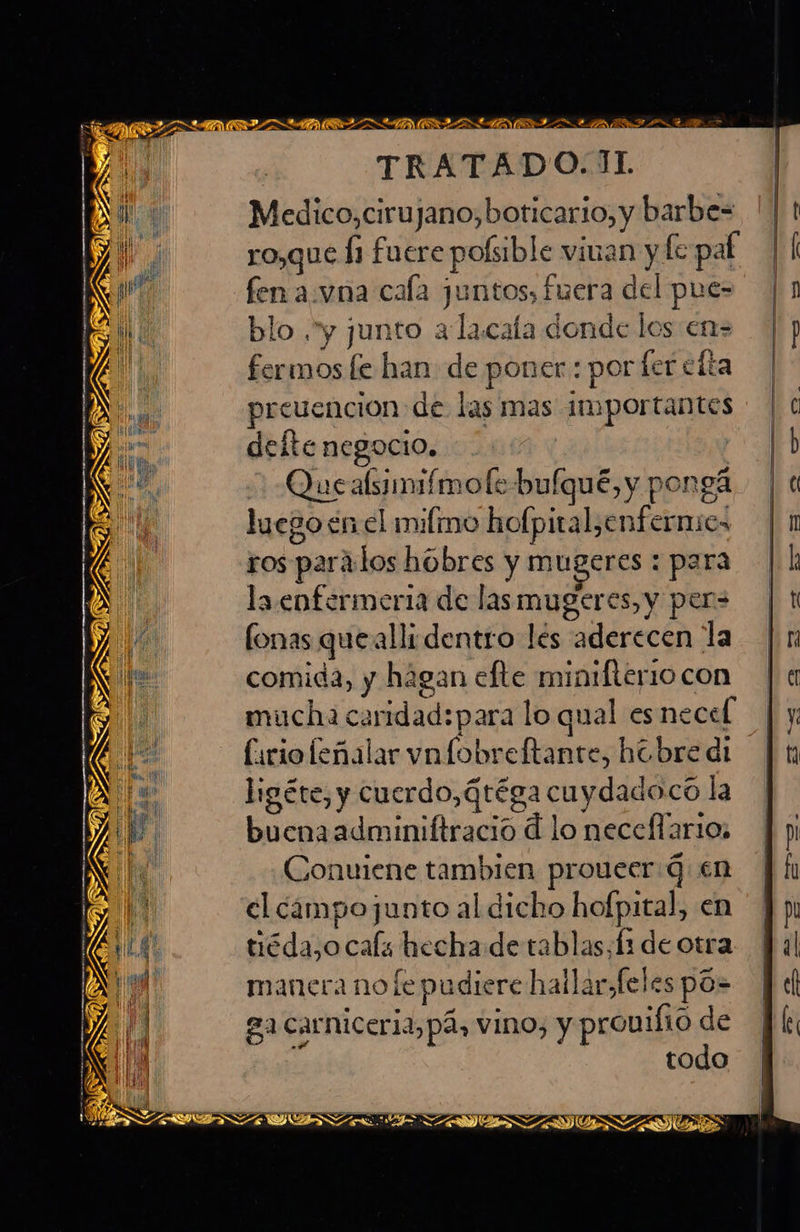 TRATADO. II.
Medico,cirujano,boticario,y barbe-
ro,que ſi fuere poſsible viuan y ſe paſ
ſen a vna caſa juntos, fuera del pue-
blo , y junto a la caſa donde los en-
fermos ſe han de poner : por ſer eſta
preuencion de las mas importantes
deſte negocio.
Que aſsimiſmo ſe buſquē, y pongā
luego en el miſmo hoſpital,enferme-
ros para los hōbres y mugeres : para
la enfermeria de las mugeres, y per-
ſonas que alli dentro les aderecen la
comida, y hagan eſte miniſterio con
mucha caridad:para lo qual es neceſ
ſario ſeñalar vn ſobreſtante, hōbre di
ligēte, y cuerdo,q̄ tēga cuydado cō la
buena adminiſtraciō d̄ lo neceſſario.
Conuiene tambien proueer q̄ en
el campo junto al dicho hoſpital, en
tiēda,o caſa hecha de tablas,ſi de otra
manera no ſe pudiere hallar,ſeles pō-
ga carniceria,pā, vino, y prouiſiō de
todo